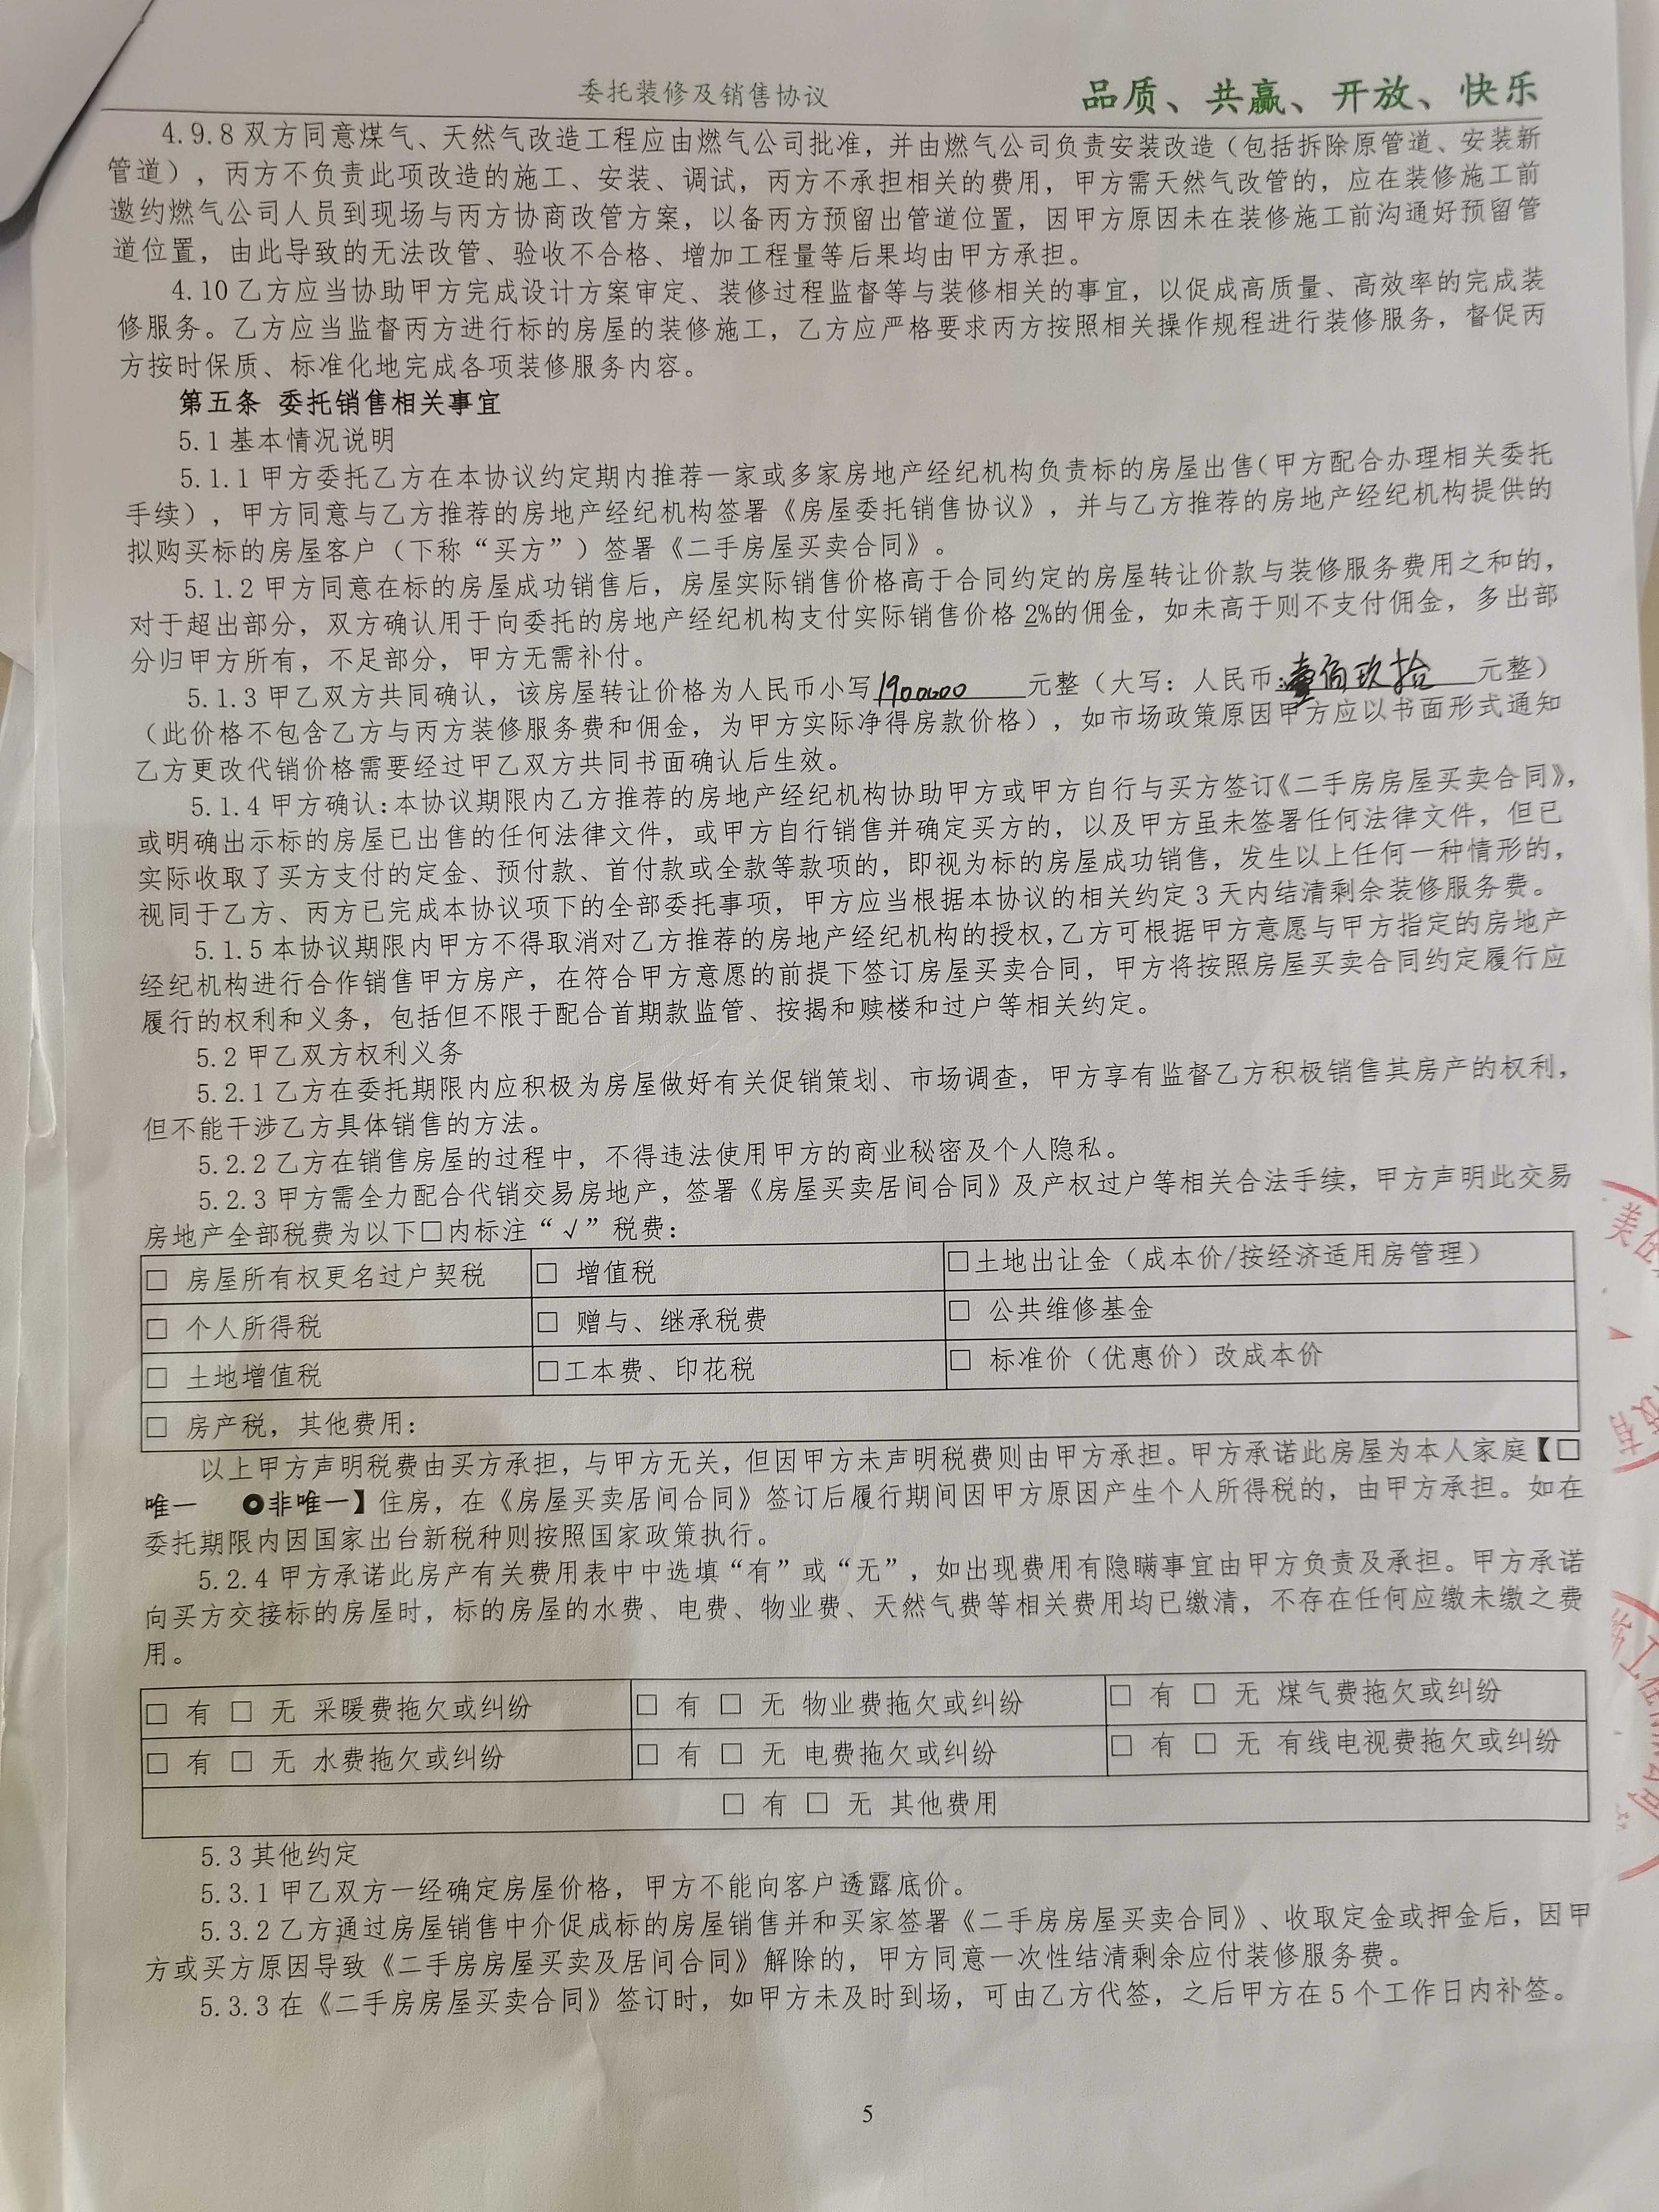 委托装修及销售协议
品质、共赢、开放、快乐
4.9.8双方同意煤气、天然气改造工程应由燃气公司批准，并由燃气公司负责安装改造（包括拆除原管道、安装新
管道），丙方不负责此项改造的施工、安装、调试，丙方不承担相关的费用，甲方需天然气改管的，应在装修施工前
邀约燃气公司人员到现场与丙方协商改管方案，以备丙方预留出管道位置，因甲方原因未在装修施工前沟通好预留管
道位置，由此导致的无法改管、验收不合格、增加工程量等后果均由甲方承担。
4.10乙方应当协助甲方完成设计方案审定、装修过程监督等与装修相关的事宜，以促成高质量、高效率的完成装
修服务。乙方应当监督丙方进行标的房屋的装修施工，乙方应严格要求丙方按照相关操作规程进行装修服务，督促丙
方按时保质、标准化地完成各项装修服务内容。
第五条 委托销售相关事宜
5.1基本情况说明
5.1.1甲方委托乙方在本协议约定期内推荐一家或多家房地产经纪机构负责标的房屋出售（甲方配合办理相关委托
手续），甲方同意与乙方推荐的房地产经纪机构签署《房屋委托销售协议》，并与乙方推荐的房地产经纪机构提供的
拟购买标的房屋客户（下称“买方”）签署《二手房屋买卖合同》。
5.1.2甲方同意在标的房屋成功销售后，房屋实际销售价格高于合同约定的房屋转让价款与装修服务费用之和的，
对于超出部分，双方确认用于向委托的房地产经纪机构支付实际销售价格2%的佣金，如未高于则不支付佣金，多出部
分归甲方所有，不足部分，甲方无需补付。
5.1.3甲乙双方共同确认，该房屋转让价格为人民币小写1900000元整（大写：人民币:壹佰玖拾元整）
（此价格不包含乙方与丙方装修服务费和佣金，为甲方实际净得房款价格），如市场政策原因甲方应以书面形式通知
乙方更改代销价格需要经过甲乙双方共同书面确认后生效。
5.1.4甲方确认:本协议期限内乙方推荐的房地产经纪机构协助甲方或甲方自行与买方签订《二手房房屋买卖合同》，
或明确出示标的房屋已出售的任何法律文件，或甲方自行销售并确定买方的，以及甲方虽未签署任何法律文件，但已
实际收取了买方支付的定金、预付款、首付款或全款等款项的，即视为标的房屋成功销售，发生以上任何一种情形的，
视同于乙方、丙方已完成本协议项下的全部委托事项，甲方应当根据本协议的相关约定3天内结清剩余装修服务费。
5.1.5本协议期限内甲方不得取消对乙方推荐的房地产经纪机构的授权，乙方可根据甲方意愿与甲方指定的房地产
经纪机构进行合作销售甲方房产，在符合甲方意愿的前提下签订房屋买卖合同，甲方将按照房屋买卖合同约定履行应
履行的权利和义务，包括但不限于配合首期款监管、按揭和赎楼和过户等相关约定。
5.2甲乙双方权利义务
5.2.1乙方在委托期限内应积极为房屋做好有关促销策划、市场调查，甲方享有监督乙方积极销售其房产的权利，
但不能干涉乙方具体销售的方法。
5.2.2乙方在销售房屋的过程中，不得违法使用甲方的商业秘密及个人隐私。
5.2.3甲方需全力配合代销交易房地产，签署《房屋买卖居间合同》及产权过户等相关合法手续，甲方声明此交易
房地产全部税费为以下□内标注“√”税费：
□ 房屋所有权更名过户契税 □ 增值税 □土地出让金（成本价/按经济适用房管理）
□ 个人所得税 □ 赠与、继承税费 □ 公共维修基金
□ 土地增值税 □工本费、印花税 □ 标准价（优惠价）改成本价
□ 房产税，其他费用：
以上甲方声明税费由买方承担，与甲方无关，但因甲方未声明税费则由甲方承担。甲方承诺此房屋为本人家庭【□
唯一 ⭘非唯一】住房，在《房屋买卖居间合同》签订后履行期间因甲方原因产生个人所得税的，由甲方承担。如在
委托期限内因国家出台新税种则按照国家政策执行。
5.2.4甲方承诺此房产有关费用表中中选填“有”或“无”，如出现费用有隐瞒事宜由甲方负责及承担。甲方承诺
向买方交接标的房屋时，标的房屋的水费、电费、物业费、天然气费等相关费用均已缴清，不存在任何应缴未缴之费
用。
□ 有 □ 无 采暖费拖欠或纠纷 □ 有 □ 无 物业费拖欠或纠纷 □ 有 □ 无 煤气费拖欠或纠纷
□ 有 □ 无 水费拖欠或纠纷 □ 有 □ 无 电费拖欠或纠纷 □ 有 □ 无 有线电视费拖欠或纠纷
□ 有 □ 无 其他费用
5.3其他约定
5.3.1甲乙双方一经确定房屋价格，甲方不能向客户透露底价。
5.3.2乙方通过房屋销售中介促成标的房屋销售并和买家签署《二手房房屋买卖合同》、收取定金或押金后，因甲
方或买方原因导致《二手房房屋买卖及居间合同》解除的，甲方同意一次性结清剩余应付装修服务费。
5.3.3在《二手房房屋买卖合同》签订时，如甲方未及时到场，可由乙方代签，之后甲方在5个工作日内补签。
5